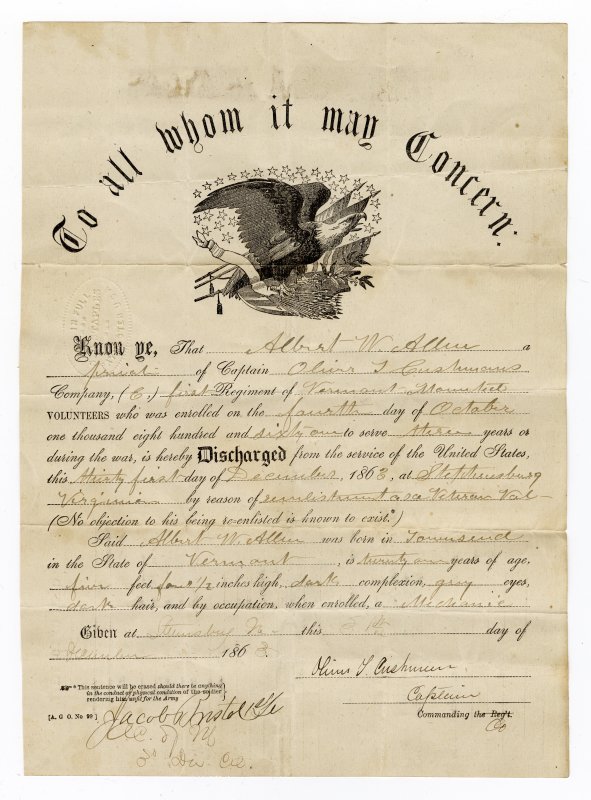 To all whom it may Concern:
Know ye, That Albert W. Allen a
privat of Captain Oliver T. Cushmans
Company, (E,) first Regiment of Vermont Mounted
VOLUNTEERS who was enrolled on the fourth day of October
one thousand eight hundred and sixty one to serve three years or
during the war, is hereby Discharged from the service of the United States,
this thirty first day of December, 1863, at Stephensburg
Virginia by reason of reenlistment as a Veteran Vol
(No objection to his being re-enlisted is known to exist.*)
Said Albert W. Allen was born in Townsend
in the State of Vermont, is twenty one years of age,
five feet four 1/2 inches high, dark complexion, gray eyes,
dark hair, and by occupation, when enrolled, a Mechanic
Given at Va this day of
December 1863.
Oliver T. Cushman.
Captain
Commanding the Reg't.
Co
* This sentence will be erased should there be anything
in the conduct or physical condition of the soldier
rendering him unfit for the Army
[A. G. O. No. 99]
Jacob Bristol
3d Div Ca.